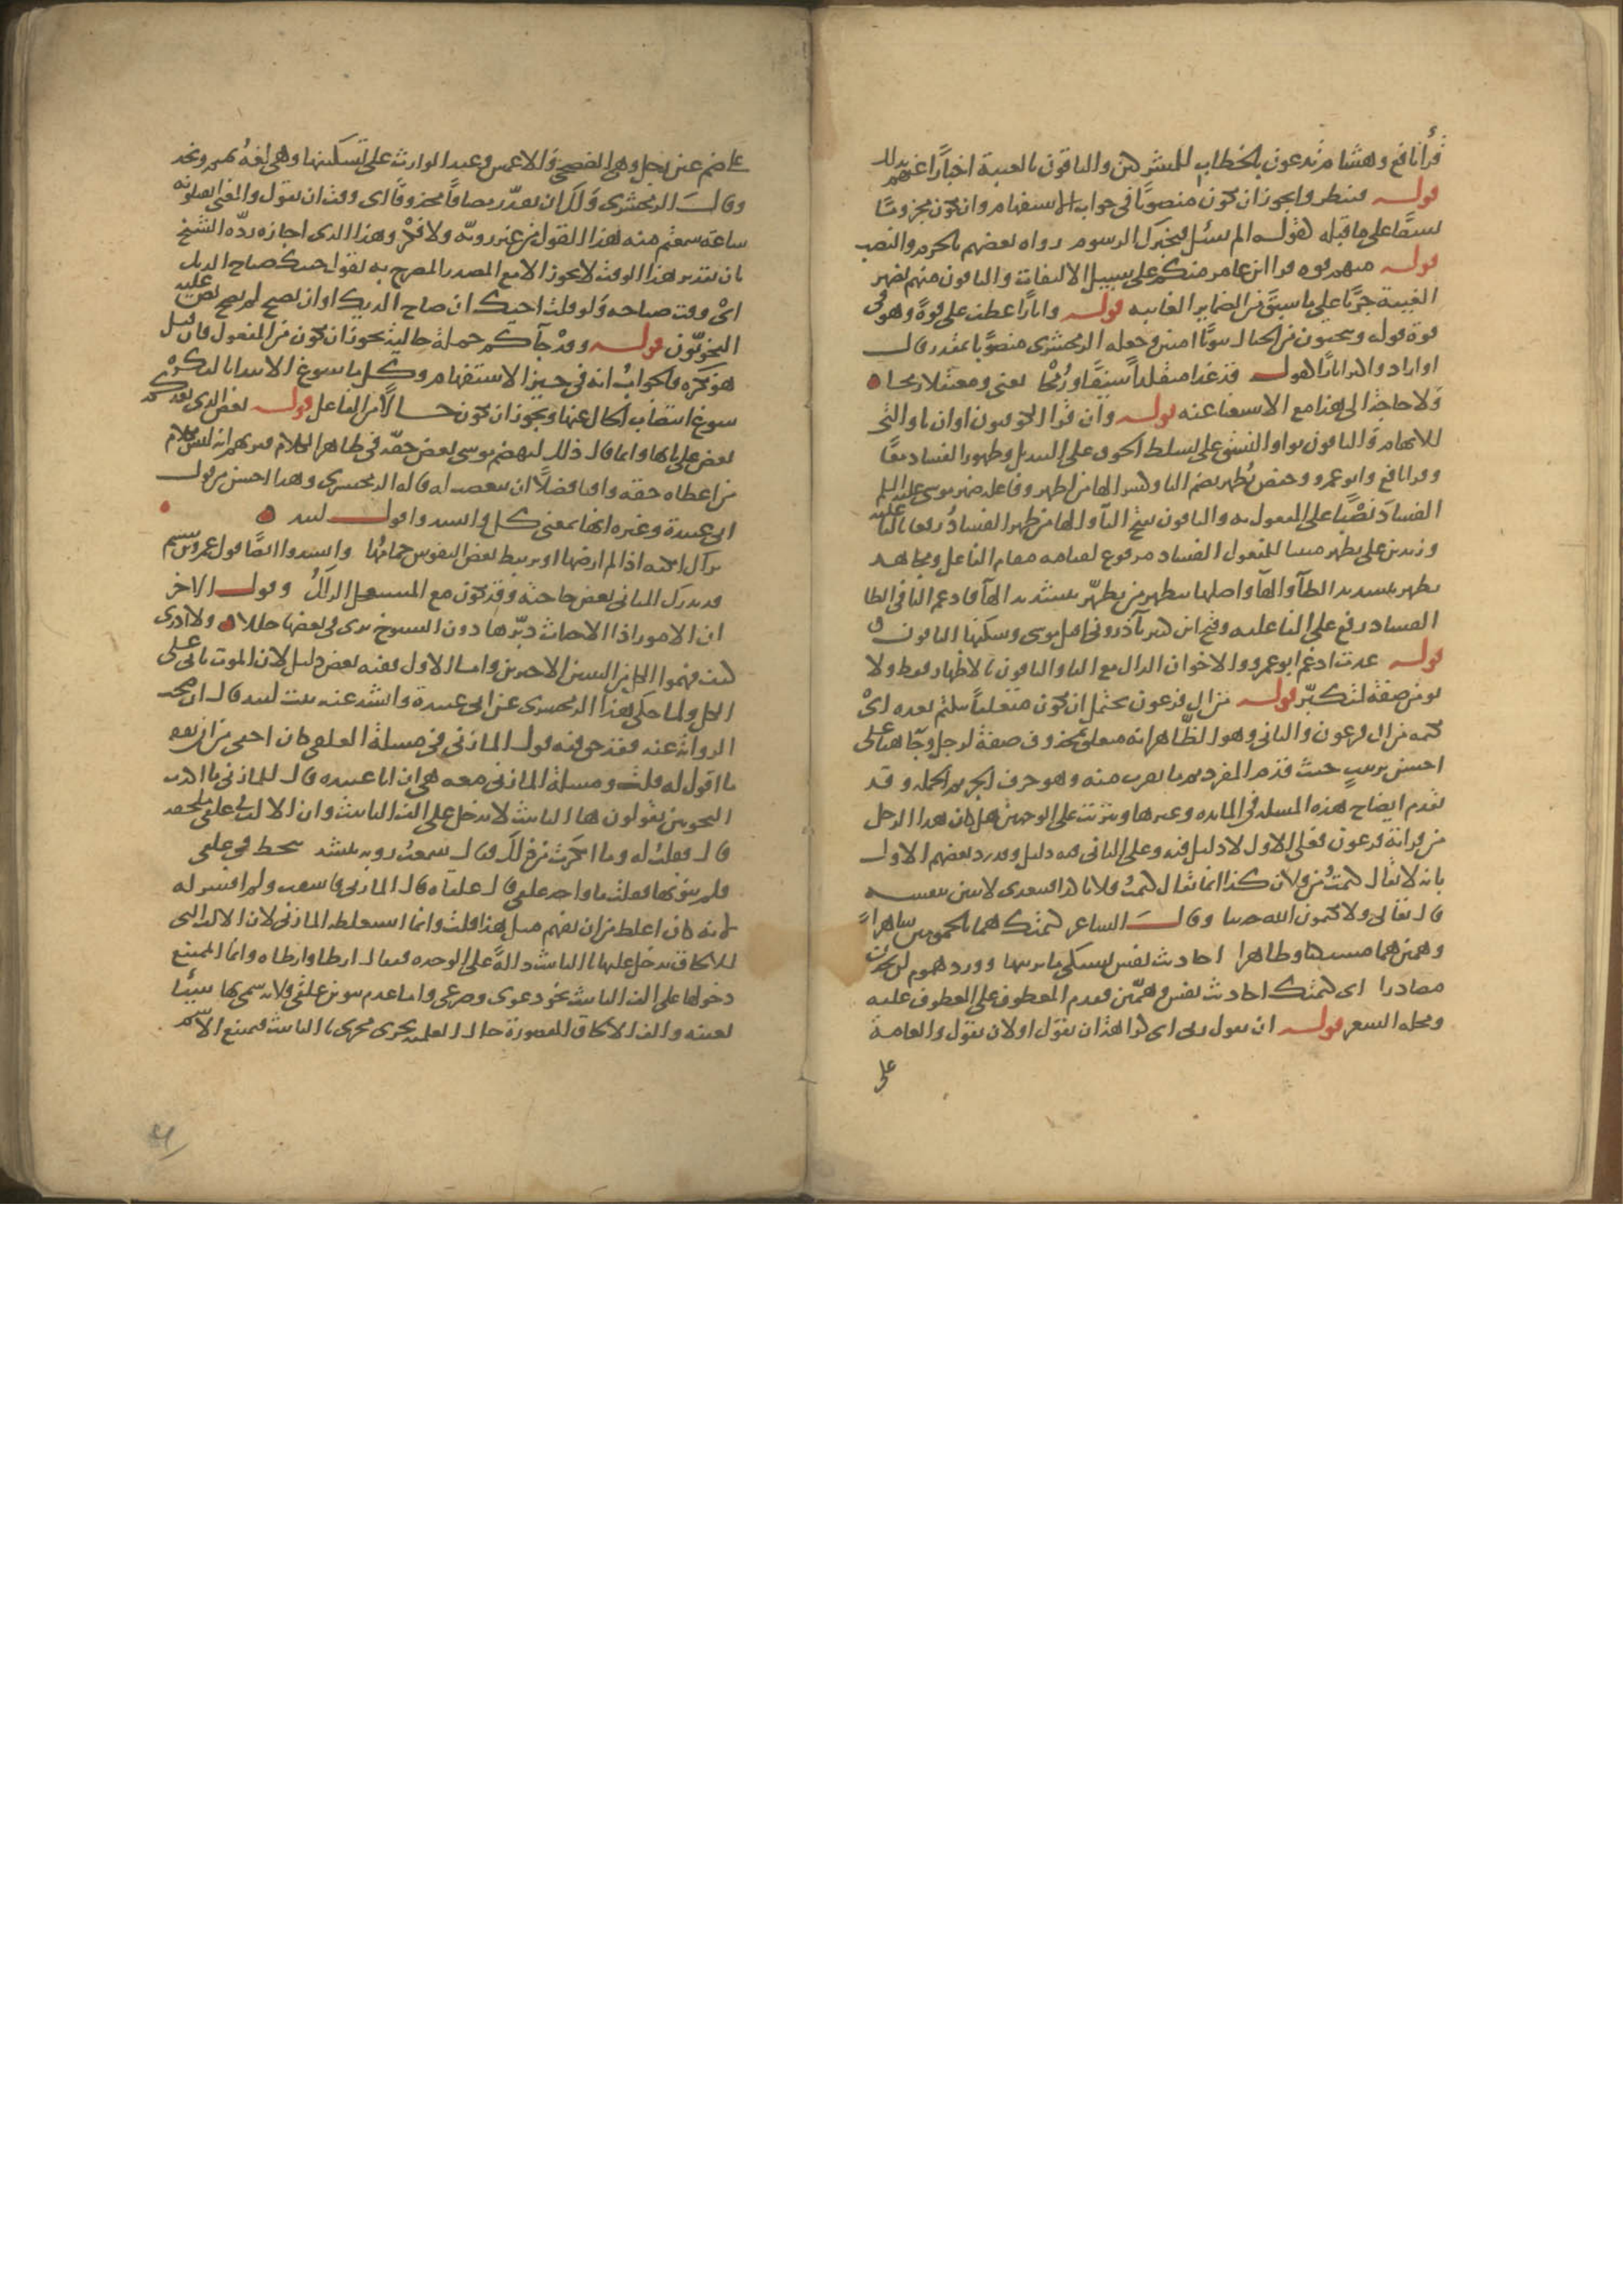 قرأ نافع وهشام تدعون بالخطاب للمشركين والباقون بالغيبة اخبارًا عنهم بذلك
قوله فينظروا يجوز ان يكون منصوبًا في جواب الاستفهام وان يكون مجزومًا
نسقًا على ما قبله كقوله الم تسئل فتخبرك الرسوم رواه بعضهم بالجزم والنصب
قوله منهم قوه قرا ابن عامر منكم على سبيل الالتفات والباقون منهم بضمير
الغيبة جريًا على ما سبق من الضماير الغايبه قوله واثارًا عطف على قوةً وهو في
قوة قوله وينحتون من الجبال بيوتًا امنين وجعله الزمخشري منصوبًا بمقدر قال
او اراد واكثر اثارًا كقوله قد غدا متقلداً سيفًا ورُمْحًا يعني ومعتقلا رمحا
ولا حاجة الى هذا مع الاستغنا عنه قوله وان قرا الكوفيون او ان باو التي
للابهام والباقون بواو النسق على تسلط الخوف على التبديل وظهور الفساد معًا
وقرا نافع وابو عمرو وحفص يُظهر بضم اليا وكسر الها من اظهر وفاعله ضمير موسى عليه السلم
الفسادَ نصْبًا على المفعول به والباقون بفتح اليآ والها من ظهر الفسادُ رفعا بالفاعلية
وزيد بن علي يظهر مبنيا للمفعول الفساد مرفوع لقيامه مقام الفاعل ومجاهد
يظهر بتشديد الظآ والهآ واصلها يتظهر من تظهّر بتشديد الهآ فادغم التا في الظا
الفساد رفع على الفاعليه وفتح ابن كثير يآ ذروني اقتل موسى وسكنها الباقون
قوله عدت ادغم ابو عمرو والاخوان الذال مع التا والباقون بالاظهار فقط ولا
يومن صفة لمتكبّر قوله من ال فرعون يحتمل ان يكون متعلقاً بيكتم بعده اىْ
يكتمه من ال فرعون والثاني وهو الظاهر انه متعلق بمحذوف صفة لرجل وجآ هنا على
احسن ترتيب حيث قدم المفرد ثم ما يقرب منه وهو حرف الجر ثم الجمله وقد
تقدم ايضاح هذه المسله في المايده وغيرها ويترتب على الوجهين هل كان هذا الرجل
من قرابة فرعون فعلى الاول لا دليل فيه وعلى الثاني فيه دليل وقد رد بعضهم الاول
بانه لا يقال كتمتُ من فلان كذا انما يقال كتمتُ فلانا كذا فيتعدى لاثنين بنفسه
قال تعالى ولا يكتمون الله حديثا وقال الشاعر كتمتك هما بالجمومين ساهراً
وهمين هما مستكنا وظاهرا احاديث نفس تشتكي ما يريبها وورد هموم لن يجدن
مصادرا اى كتمتك احاديث نفس وهمّين فقدم المعطوف على المعطوف عليه
ومحله الشعر قوله ان يقول ربي اى كراهة ان يقول او لان يقول والعامة
على
عاضم عين رجل وهي الفصحى والاعمش وعبد الوارث على تسكينها وهي لغةُ تميم ونجد
وقال الزمخشري ولك ان تقدّر مضافًا محذوفًا اى وقت ان يقول والمعنى اتقتلونه
ساعة سمعتم منه هذا القول من غير رويّه ولا فكْر وهذا الذى اجازه ردّه الشيخ
بان تقدير هذا الوقت لا يجوز الا مع المصدر المصرح به تقول جيتك صياح الديك
اىْ وقت صياحه ولو قلت اجيك ان صاح الديك او ان يصيح لم يصح نص عليه
النحويّون قوله وقدْ جآكم جملة حاليه يجوز ان تكون من المفعول فان قيل
هو نكره فالجوابُ انه في حيز الاستفهام وكل ما سوغ الابتدا بالنكرة
سوغ انتصاب الحال عنها ويجوز ان تكون حالًا من الفاعل قوله بعض الذي يعدكم
بعض على بابها وانما قال ذلك ليهضم موسى بعض حقّه في ظاهر الكلام فيريهم انه ليس بكلام
من اعطاه حقه وافيا فضلًا ان يتعصب له قاله الزمخشري وهذا احسن من قول
ابي عبيدة وغيره انها بمعنى كل وانشدوا قول لبيد
تراك امكنه اذا لم ارضها او يرتبط بعض النفوس حمامُها وانشدوا ايضًا قول عمرو بن شييم
قد يدرك المتاني بعض حاجته وقد يكون مع المستعجل الزللُ وقول الاخر
ان الامور اذا الاحداث دبّرها دون الشيوخ ترى في بعضها خللا ولا ادرى
كيف فهموا الكل من البيتين الاخيرين واما الاول ففيه بعض دليل لان الموت ياتي على
الكل ولما حكى هذا الزمخشري عن ابي عبيدة وانشد عنه بيت لبيد قال ان صحت
الرواية عنه فقد حق فيه قول المازني في مسلة العلقي كان اجفى من ان يفقه
ما اقول له قلت ومسلة المازني معه هي ان ابا عبيده قال للمازني ما اكذب
النحويين يقولون ها التانيث لا تدخل على الف التانيث وان الالف في علقى ملحقه
قال فقلت له وما انكرت من ذلك فقال سمعتُ روبة ينشد يحط في علقى
فلم ينونها فقلت ما واحد علقى قال علقاه قال المازني فاسفت ولم افسر له
لانه كان اغلظ من ان يفهم مثل هذا قلت وانما استغلظه المازني لان الالف التي
للالحاق تدخل عليها تا التانيث دالةً على الوحده فيقال ارطا وارطاه وانما الممتنع
دخولها على الف التانيث نحو دعوى وصرعى واما عدم تنوين علقى فلانه سمى بها شيئًا
بعينه والف الالحاق المقصورة حال العلميه تجرى مجرى تا التانيث فيمتنع الاسم